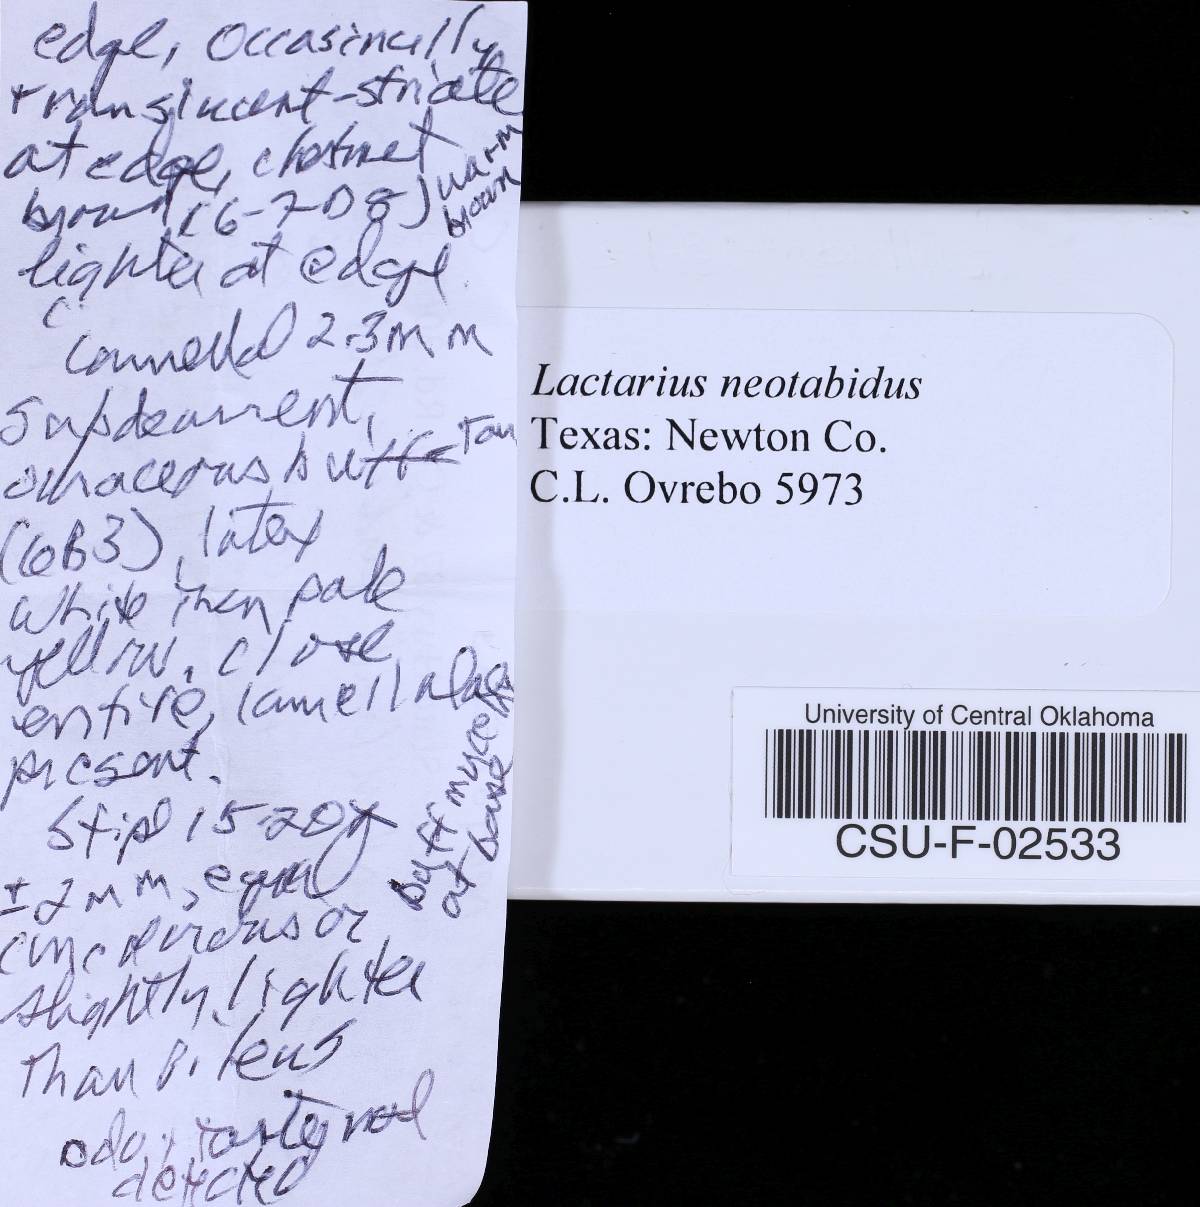 edge, occasinully
translucent-striate
at edge, chestnut
brown (6-7D8) warm
brown
lighter at edge.
Lamellae 2-3mm
subdecurrent,
buff Tan
(6B3), latex
white then pale
yellow, close,
entire, lamellulae
present.
Stipe 15-20 X
± 2mm, equal
concolorous or
slightly lighter
than pileus
buff mycelium
at base
odor, taste not
detected
Lactarius neotabidus
Texas: Newton Co.
C.L. Ovrebo 5973
University of Central Oklahoma
CSU-F-02533